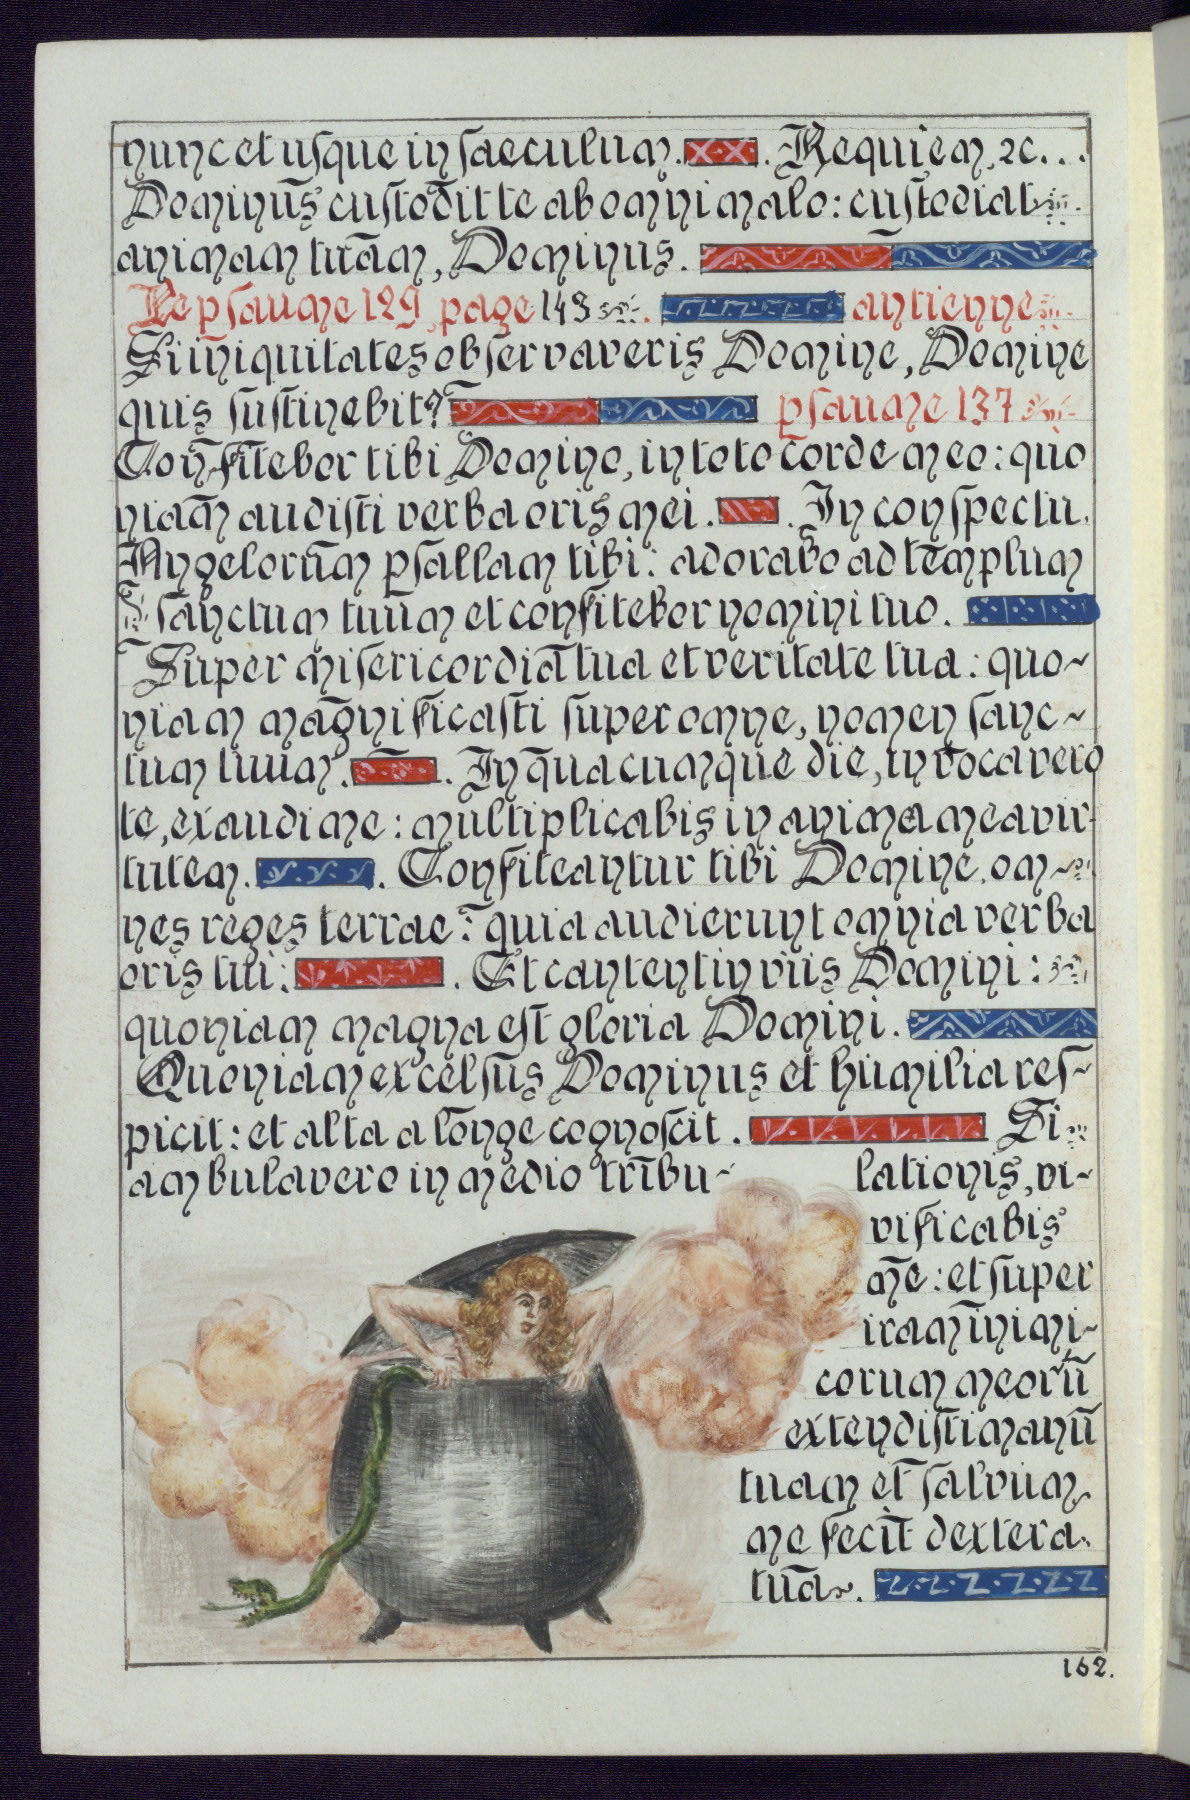 nunc et uſque in ſaeculum. Requiem, ⁊c...
Dominus cuſtodit te ab omni malo: cuſtodiat
animam tuam, Dominus.
Le pſaume 129, page 143. antienne
Si iniquitates obſervaveris Domine, Domine
quis ſuſtinebit? pſaume 137
Confitebor tibi Domine, in toto corde meo: quo
niam audiſti verba oris mei. In conſpectu
Angelorum pſallam tibi: adorabo ad templum
ſanctum tuum et confitebor nomini tuo.
Super miſericordia tua et veritate tua: quo~
niam magnificaſti ſuper omne, nomen ſanc~
tum tuum. In quacumque die, invocavero
te, exaudi me: multiplicabis in anima mea vir-
tutem. Confiteantur tibi Domine, om~
nes reges terrae: quia audierunt omnia verba
oris tui: Et cantent in viis Domini:
quoniam magna eſt gloria Domini.
Quoniam excelſus Dominus et humilia reſ~
picit: et alta a longe cognoſcit. Si
ambulavero in medio tribu~ lationis, vi~
vificabis
me: et ſuper
iram inimi~
corum meorū
extendiſti manū
tuam et ſalvum
me fecit dextera
tua.
162.